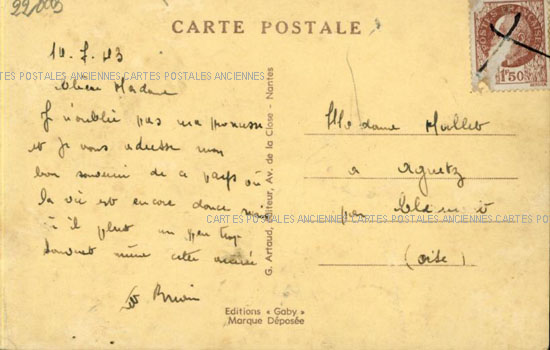 22,003
CARTE POSTALE
POSTES FRANÇAISES
1F50
10. 7. 43
CARTES POSTALES ANCIENNES CARTES POSTALES ANCIENNES CARTES POSTALES ANCIENNES
Chère Madame
Je n'oublie pas ma promesse
et je vous adresse mon
bon souvenir de ce pays où
la vie est encore douce mais
où il pleut un peu trop
souvent même cette année
G. Artaud, Editeur, Av. de la Close - Nantes
Madame Mallet
à Agnetz
par Clermont
(Oise)
CARTES POSTALES ANCIENNES CARTES POSTALES ANCIENNES CARTES POSTALES
Editions « Gaby »
Marque Déposée